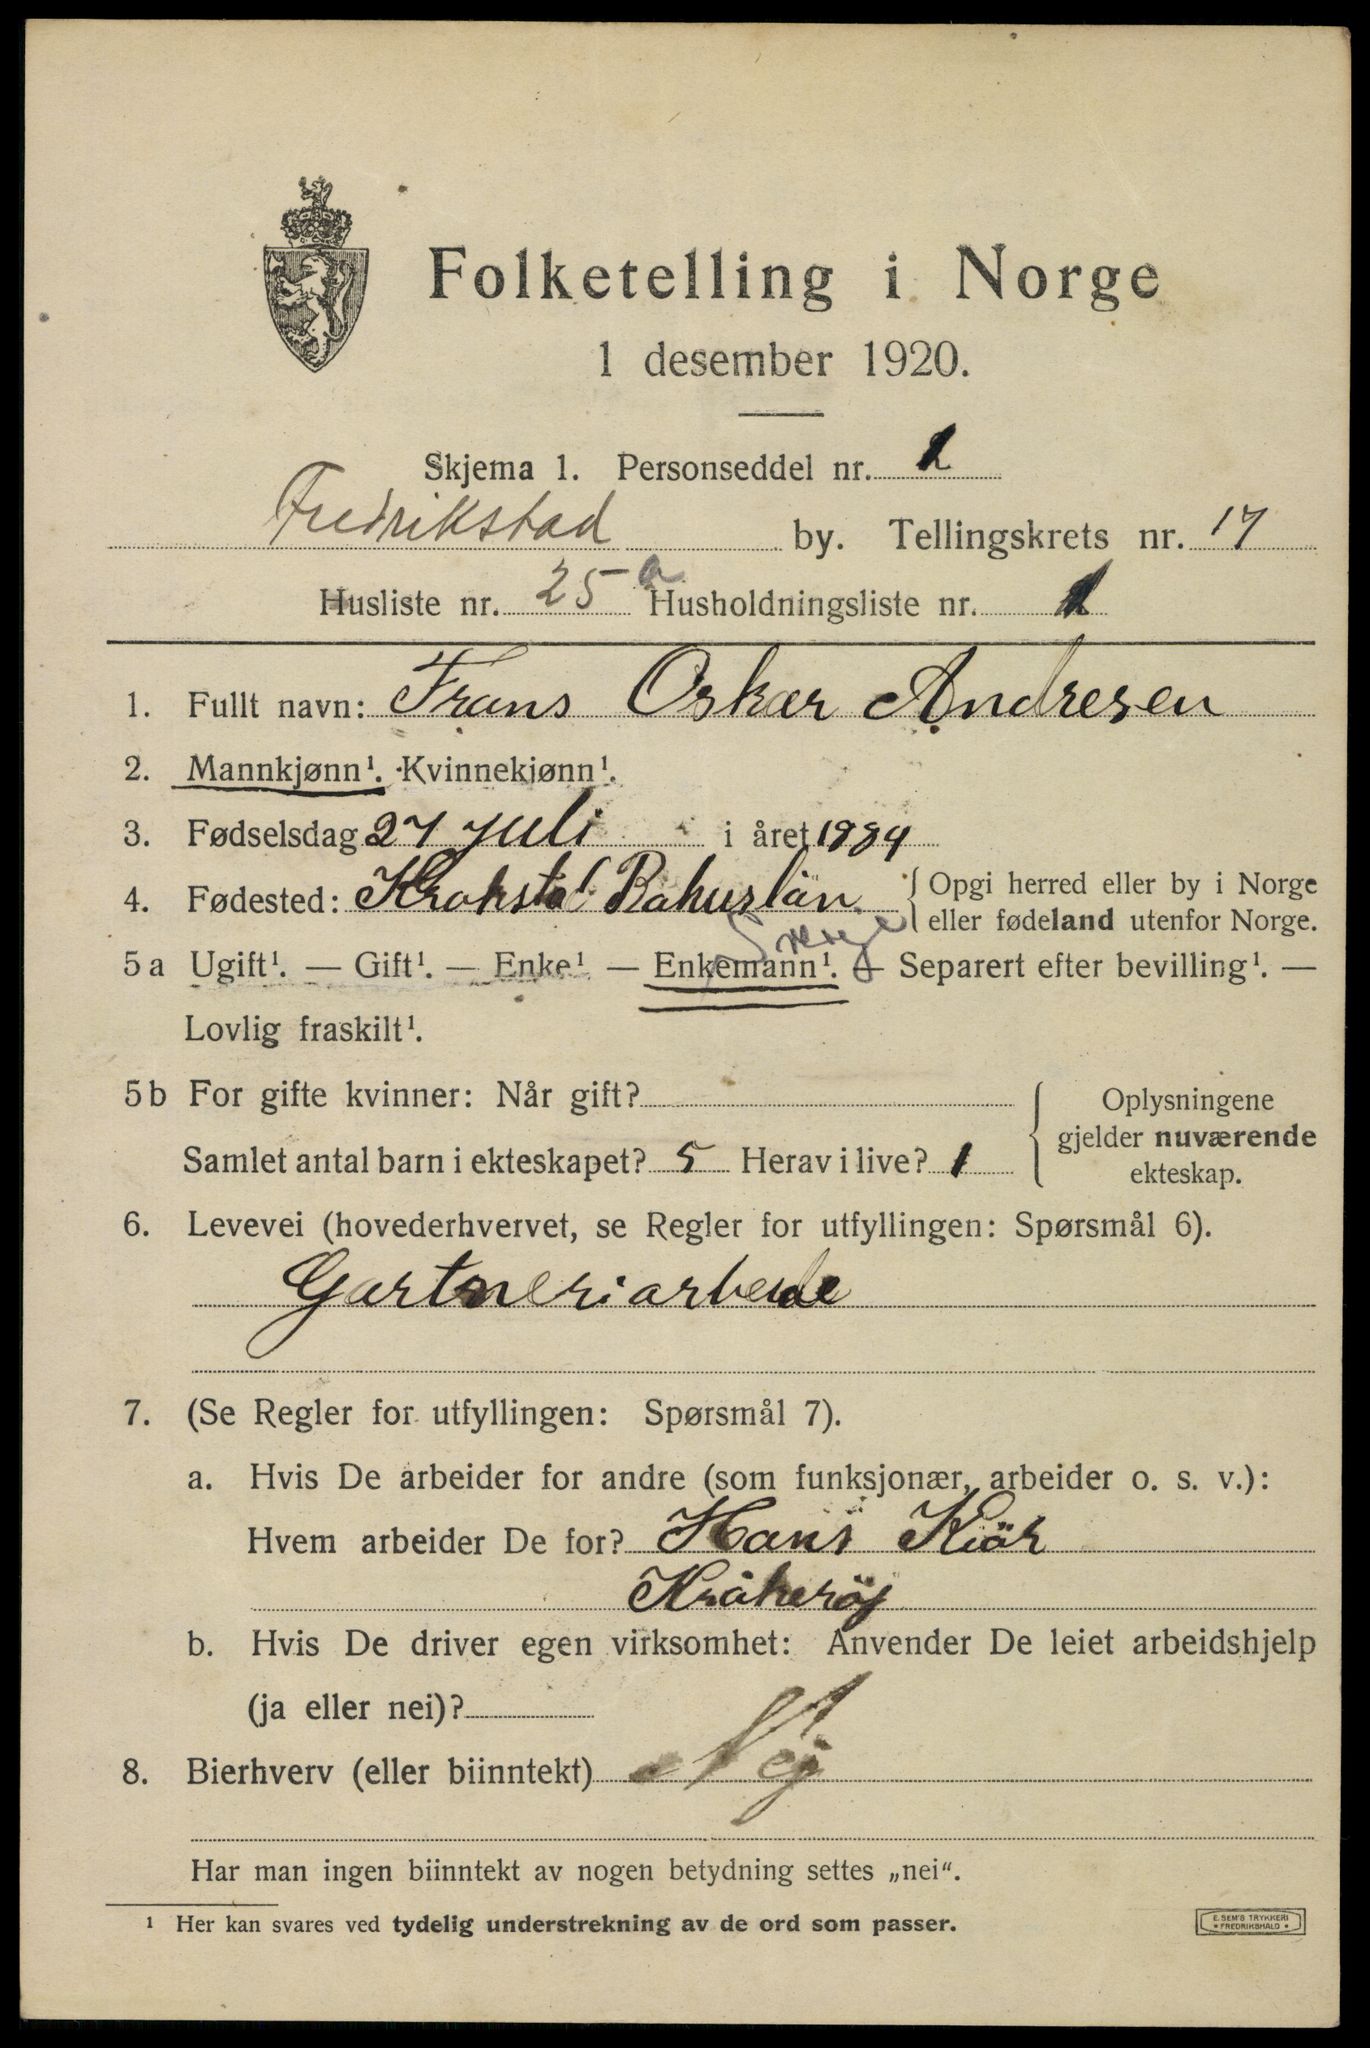 Folketelling i Norge
1 desember 1920.
Skjema 1. Personseddel nr. 1
Fredrikstad by. Tellingskrets nr. 17
Husliste nr. 25 a Husholdningsliste nr. 1
1. Fullt navn: Frans Oskar Andresen
2. Mannkjønn¹. Kvinnekjønn¹.
3. Fødselsdag 27 juli i året 1884
4. Fødested: Krokstad Bahuslän { Opgi herred eller by i Norge
eller fødeland utenfor Norge.
Sverige
5a Ugift¹. — Gift¹. — Enke¹ — Enkemann¹. — Separert efter bevilling¹. —
Lovlig fraskilt¹.
5b For gifte kvinner: Når gift?
Samlet antal barn i ekteskapet? 5 Herav i live? 1
Oplysningene
gjelder nuværende
ekteskap.
6. Levevei (hovederhvervet, se Regler for utfyllingen: Spørsmål 6).
Gartneriarbeide
7. (Se Regler for utfyllingen: Spørsmål 7).
a. Hvis De arbeider for andre (som funksjonær, arbeider o. s. v.):
Hvem arbeider De for? Hans Kiär
Kråkeröj
b. Hvis De driver egen virksomhet: Anvender De leiet arbeidshjelp
(ja eller nei)?
8. Bierhverv (eller biinntekt) Nej
Har man ingen biinntekt av nogen betydning settes „nei“.
¹ Her kan svares ved tydelig understrekning av de ord som passer.
E. SEM'S TRYKKERI
FREDRIKSHALD